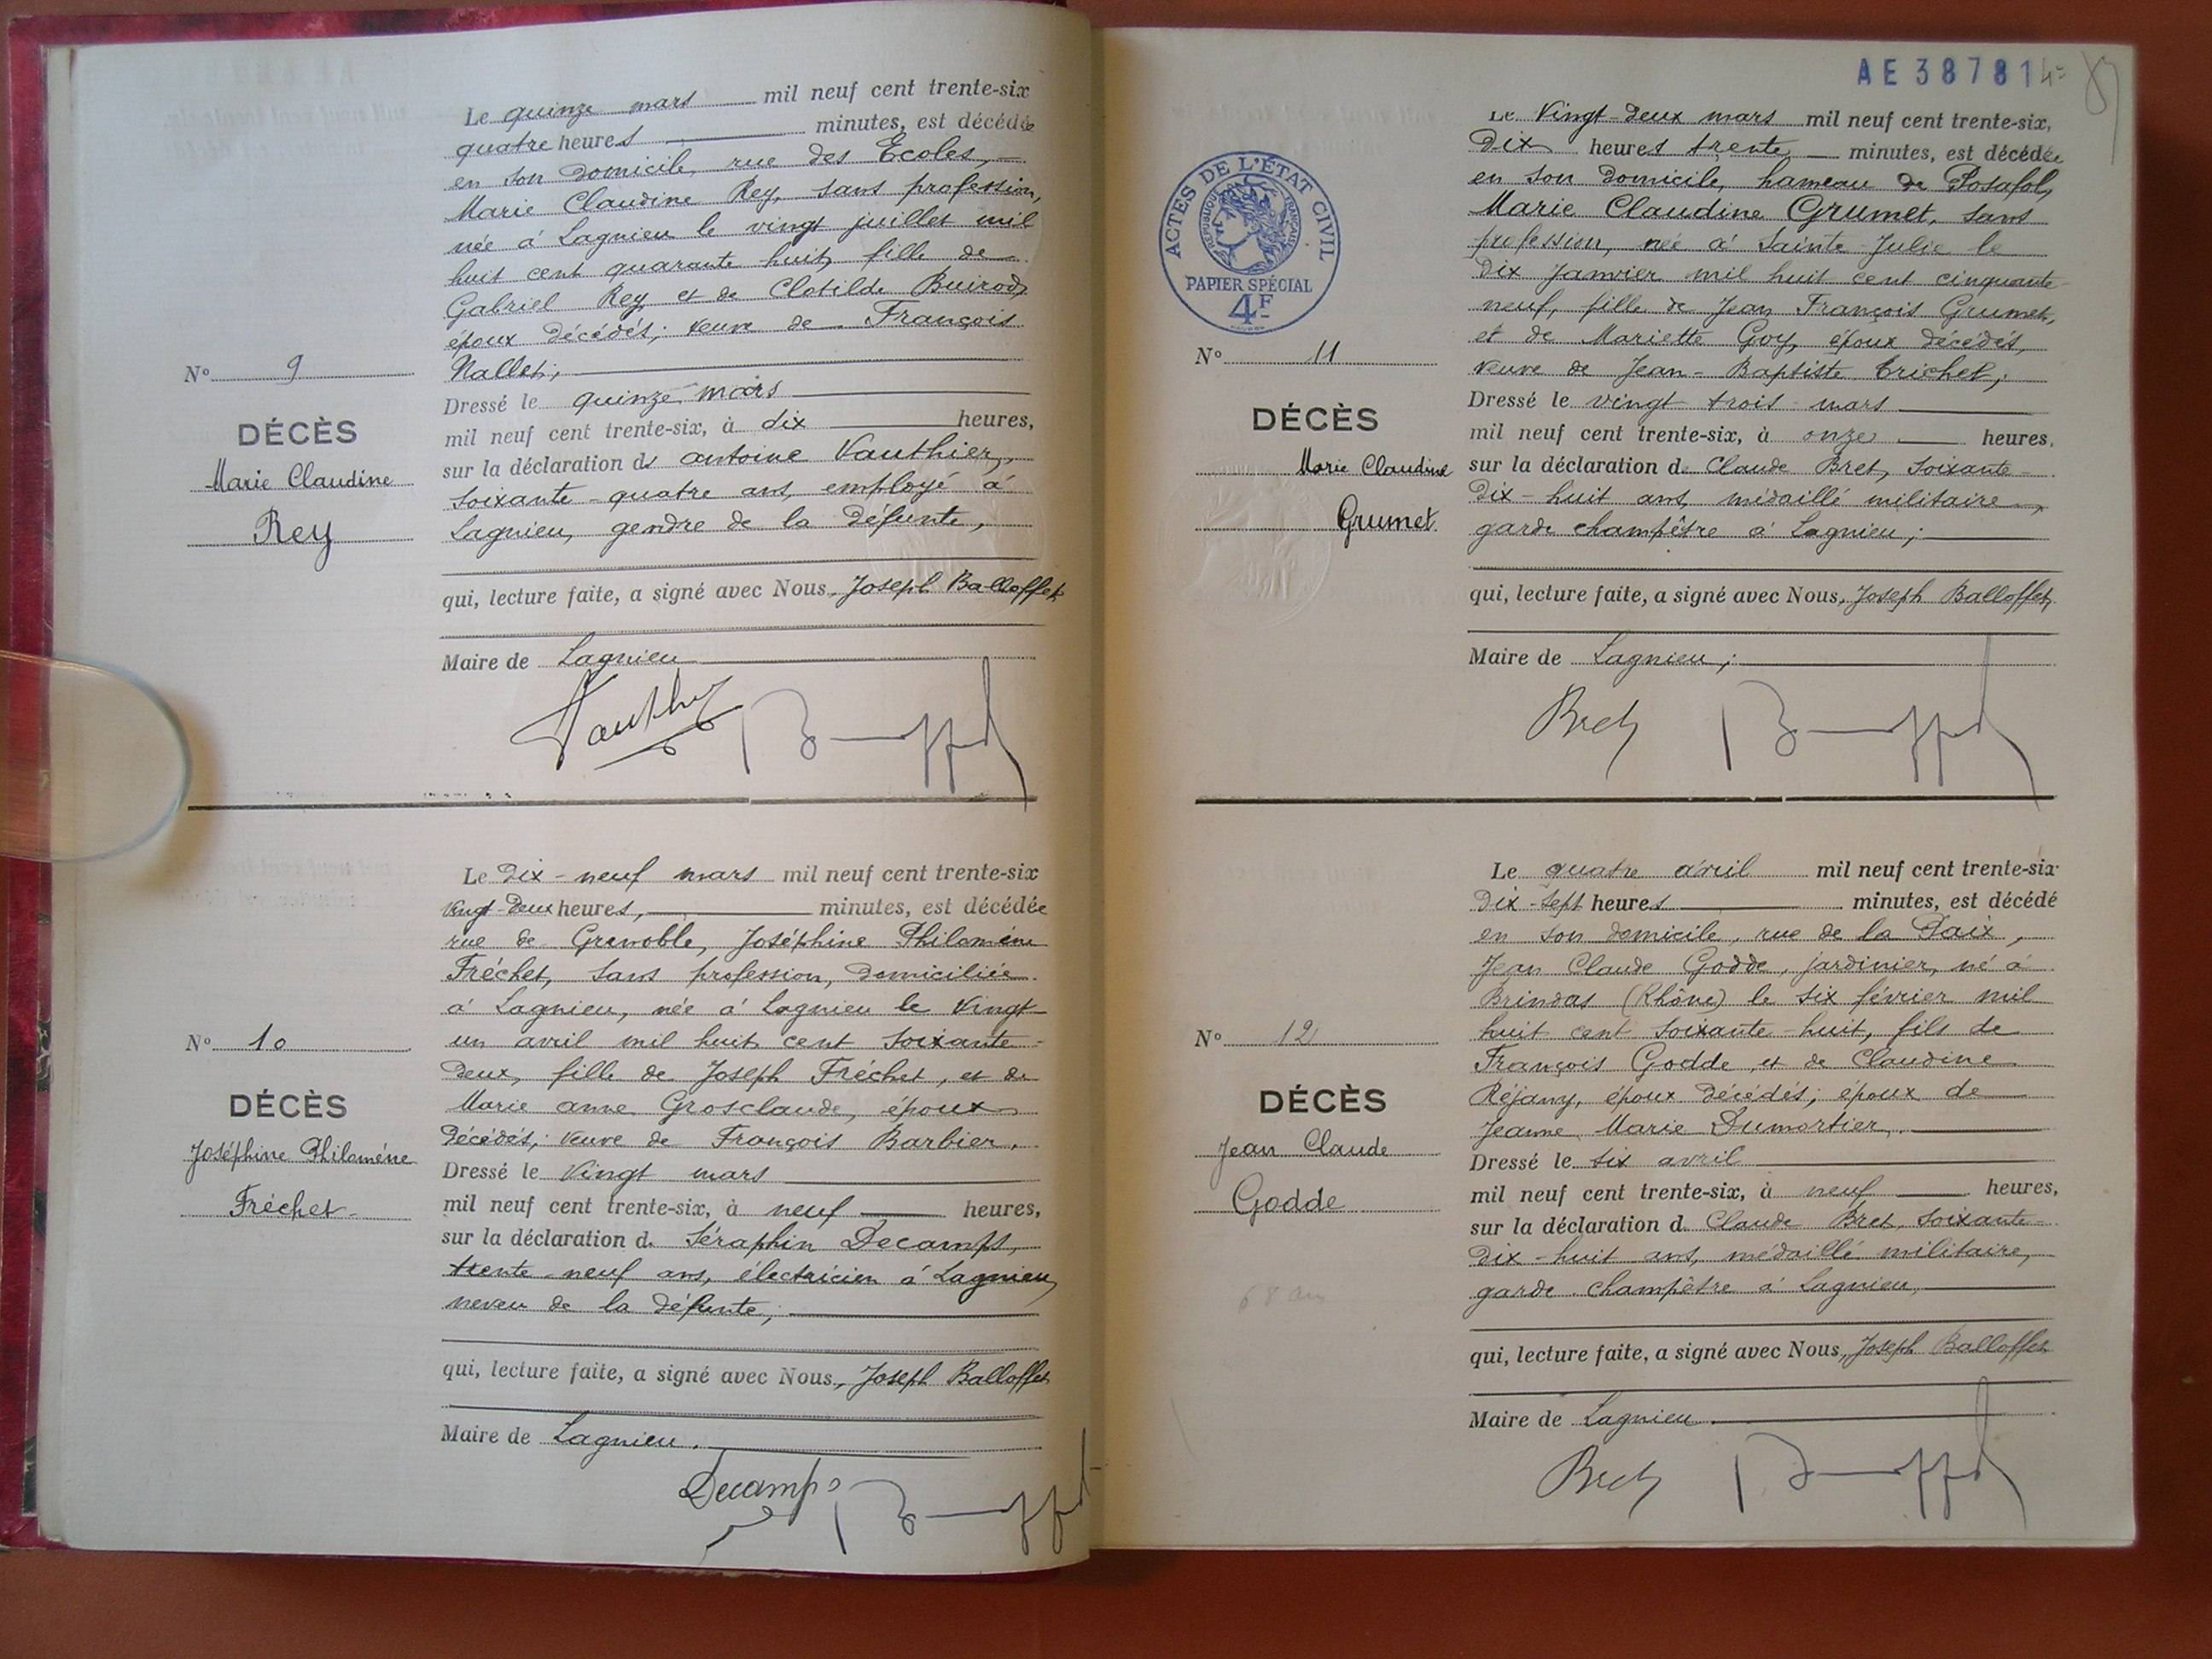 Le quinze mars mil neuf cent trente-six
quatre heures minutes, est décédée
en son domicile, rue des Ecoles,
Marie Claudine Rey, sans profession,
née à Lagnieu le vingt juillet mil
huit cent quarante huit, fille de
Gabriel Rey, et de Clotilde Buirod,
époux décédés; veuve de François
Nallet;
Nº 9
DÉCÈS
Marie Claudine
Rey
Dressé le quinze mars
mil neuf cent trente-six, à dix heures,
sur la déclaration d' antoine Vauthier,
soixante-quatre ans, employé à
Lagnieu, gendre de la défunte,
qui, lecture faite, a signé avec Nous, Joseph Balloffet
Maire de Lagnieu
Vauthier
Le Dix-neuf mars mil neuf cent trente-six
vingt-deux heures, minutes, est décédée
rue de Grenoble, Joséphine Philomène
Fréchet, sans profession, domiciliée
à Lagnieu, née à Lagnieu le vingt-
un avril mil huit cent soixante-
deux, fille de Joseph Fréchet, et de
Marie anne Grosclaude, époux
décédés; veuve de François Barbier.
Nº 10
DÉCÈS
Joséphine Philomène
Fréchet
Dressé le vingt mars
mil neuf cent trente-six, à neuf heures,
sur la déclaration d. Séraphin Decamps,
trente-neuf ans, électricien à Lagnieu,
neveu de la défunte;
qui, lecture faite, a signé avec Nous, Joseph Balloffet
Maire de Lagnieu.
Decamps
AE 38781
ACTES DE L'ÉTAT CIVIL
RÉPUBLIQUE FRANÇAISE
PAPIER SPÉCIAL
4F
Le vingt-deux mars mil neuf cent trente-six,
Dix heures trente minutes, est décédée
en son domicile, hameau de Posafol,
Marie Claudine Grumet, sans
profession, née à Sainte-Julie le
dix janvier mil huit cent cinquante-
neuf, fille de Jean François Grumet,
et de Mariette Goy, époux décédés,
veuve de Jean-Baptiste Trichet;
Nº 11
DÉCÈS
Marie Claudine
Grumet.
Dressé le vingt trois mars
mil neuf cent trente-six, à onze heures,
sur la déclaration d. Claude Bret, soixante-
dix-huit ans, médaillé militaire,
garde champêtre à Lagnieu;
qui, lecture faite, a signé avec Nous, Joseph Balloffet,
Maire de Lagnieu;
Bret
Le quatre avril mil neuf cent trente-six
dix-sept heures minutes, est décédé
en son domicile, rue de la Paix,
Jean Claude Godde, jardinier, né à
Brindas (Rhône) le six février mil
huit cent soixante-huit, fils de
François Godde, et de Claudine
Réjany, époux décédés; époux de
Jeanne Marie Dumortier.
Nº 12
DÉCÈS
Jean Claude
Godde
68 an
Dressé le six avril
mil neuf cent trente-six, à neuf heures,
sur la déclaration d. Claude Bret, soixante-
dix-huit ans, médaillé militaire,
garde champêtre à Lagnieu,
qui, lecture faite, a signé avec Nous, Joseph Balloffet
Maire de Lagnieu.
Bret